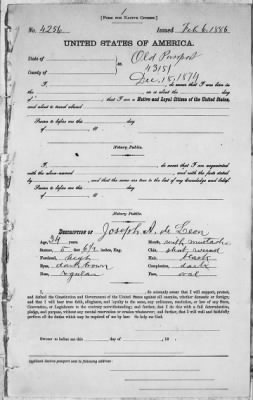 [FORM FOR NATIVE CITIZEN.]
No. 4256 Issued Feb 6, 1886
UNITED STATES OF AMERICA.
STATE OF Old Passport
COUNTY OF 43151
Dec. 15, 1874
do swear that I was born in
on or about the day of
that I am a Native and Loyal Citizen of the United States,
and about to travel abroad.
Sworn to before me this day
of , 18
Notary Public.
I, do swear that I am acquainted
with the above-named , and with the facts stated
by and that the same are true to the best of my knowledge and belief.
Sworn to before me this day
of , 18
Notary Public.
DESCRIPTION OF Joseph A. de Leon
Age, 34 years Mouth, with mustache
Stature, 5 feet 6½ inches, Eng. Chin, round
Forehead, high Hair, black
Eyes, dark brown Complexion, dark
Nose, regular Face, oval
I, do solemnly swear that I will support, protect,
and defend the Constitution and Government of the United States against all enemies, whether domestic or foreign;
and that I will bear true faith, allegiance, and loyalty to the same, any ordinance, resolution, or law of any State,
Convention, or Legislature to the contrary notwithstanding; and further, that I do this with a full determination,
pledge, and purpose, without any mental reservation or evasion whatsoever; and further, that I will well and faithfully
perform all the duties which may be required of me by law: So help me God.
Sworn to before me this day
of , 18
Applicant desires passport to be sent to